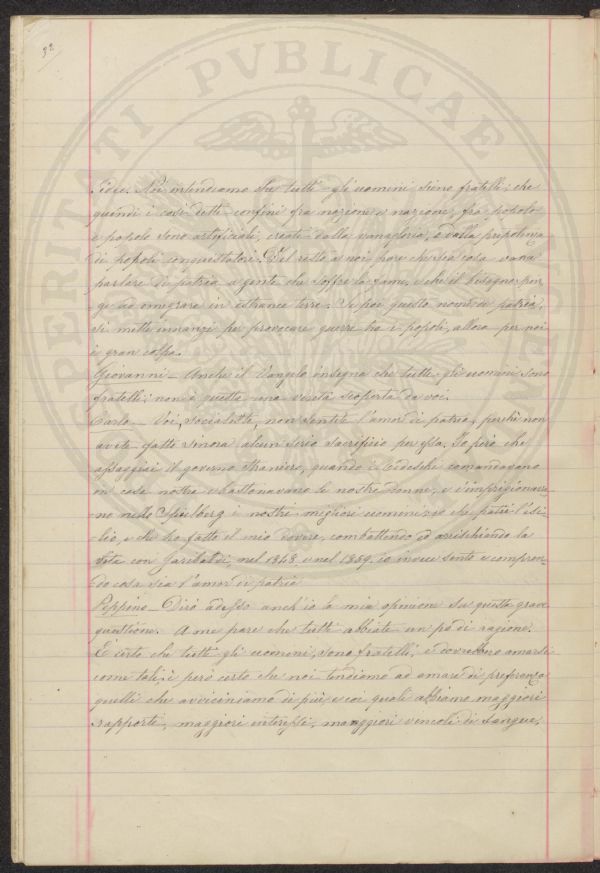 32
PROSPERITATI PVBLICAE
Noi intendiamo che tutti gli uomini sieno fratelli; che
quindi i così detti confini fra nazione e nazione, fra popolo
e popolo sono artificiali, creati dalla vanagloria, o dalla prepotenza
di popoli conquistatori. Del resto a noi pare che sia cosa vana
parlare di patria a gente che soffre la fame, e che il bisogno spin-
ge ad emigrare in estranee terre. Se poi questo nome di patria,
si mette innanzi per provocare guerre tra i popoli, allora per noi
è gran colpa.
Giovanni - Anche il Vangelo insegna che tutti gli uomini sono
fratelli; non è questa una verità scoperta da voi.
Carlo - Voi, socialisti, non sentite l'amor di patria, perchè non
avete fatto sinora alcun serio sacrificio per essa. Io però che
assaggiai il governo straniero, quando i tedeschi comandavano
in casa nostra e bastonavano le nostre donne, e c'imprigionava-
no nello Spielberg i nostri migliori uomini; io che patii l'esi-
lio, e che ho fatto il mio dovere, combattendo ed arrischiando la
vita con Garibaldi, nel 1848 e nel 1859, io invece sento e compren-
do cosa sia l'amor di patria
Peppino - Dirò adesso anch'io la mia opinione su questa grave
questione. A me pare che tutti abbiate un po' di ragione.
È certo che tutti gli uomini, sono fratelli, e dovrebbero amarsi
come tali; è però certo che noi tendiamo ad amare di preferenza
quelli che avviciniamo di più, e coi quali abbiamo maggiori
rapporti, maggiori interessi, maggiori vincoli di sangue;